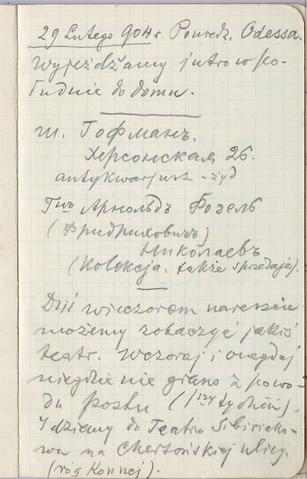 29 Lutego 904 r. Poniedz. Odessa.
Wyjeżdżamy jutro w po-
łudnie do domu.
Гофманъ.
Херсонская 26.
antykwarjusz - żyd
Гнъ Арнольдъ Фогель
(Фридриховичъ)
Николаевъ
(Kolekcja, także sprzedaje).
Dziś wieczorem nareszcie
możemy zobaczyć jakiś
teatr. Wczoraj i onegdaj
nigdzie nie grano z powo-
du postu (1szy tydzień).
Idziemy do Teatru Sibiriako-
wa na Chersońskiej ulicy
(róg Konnej).